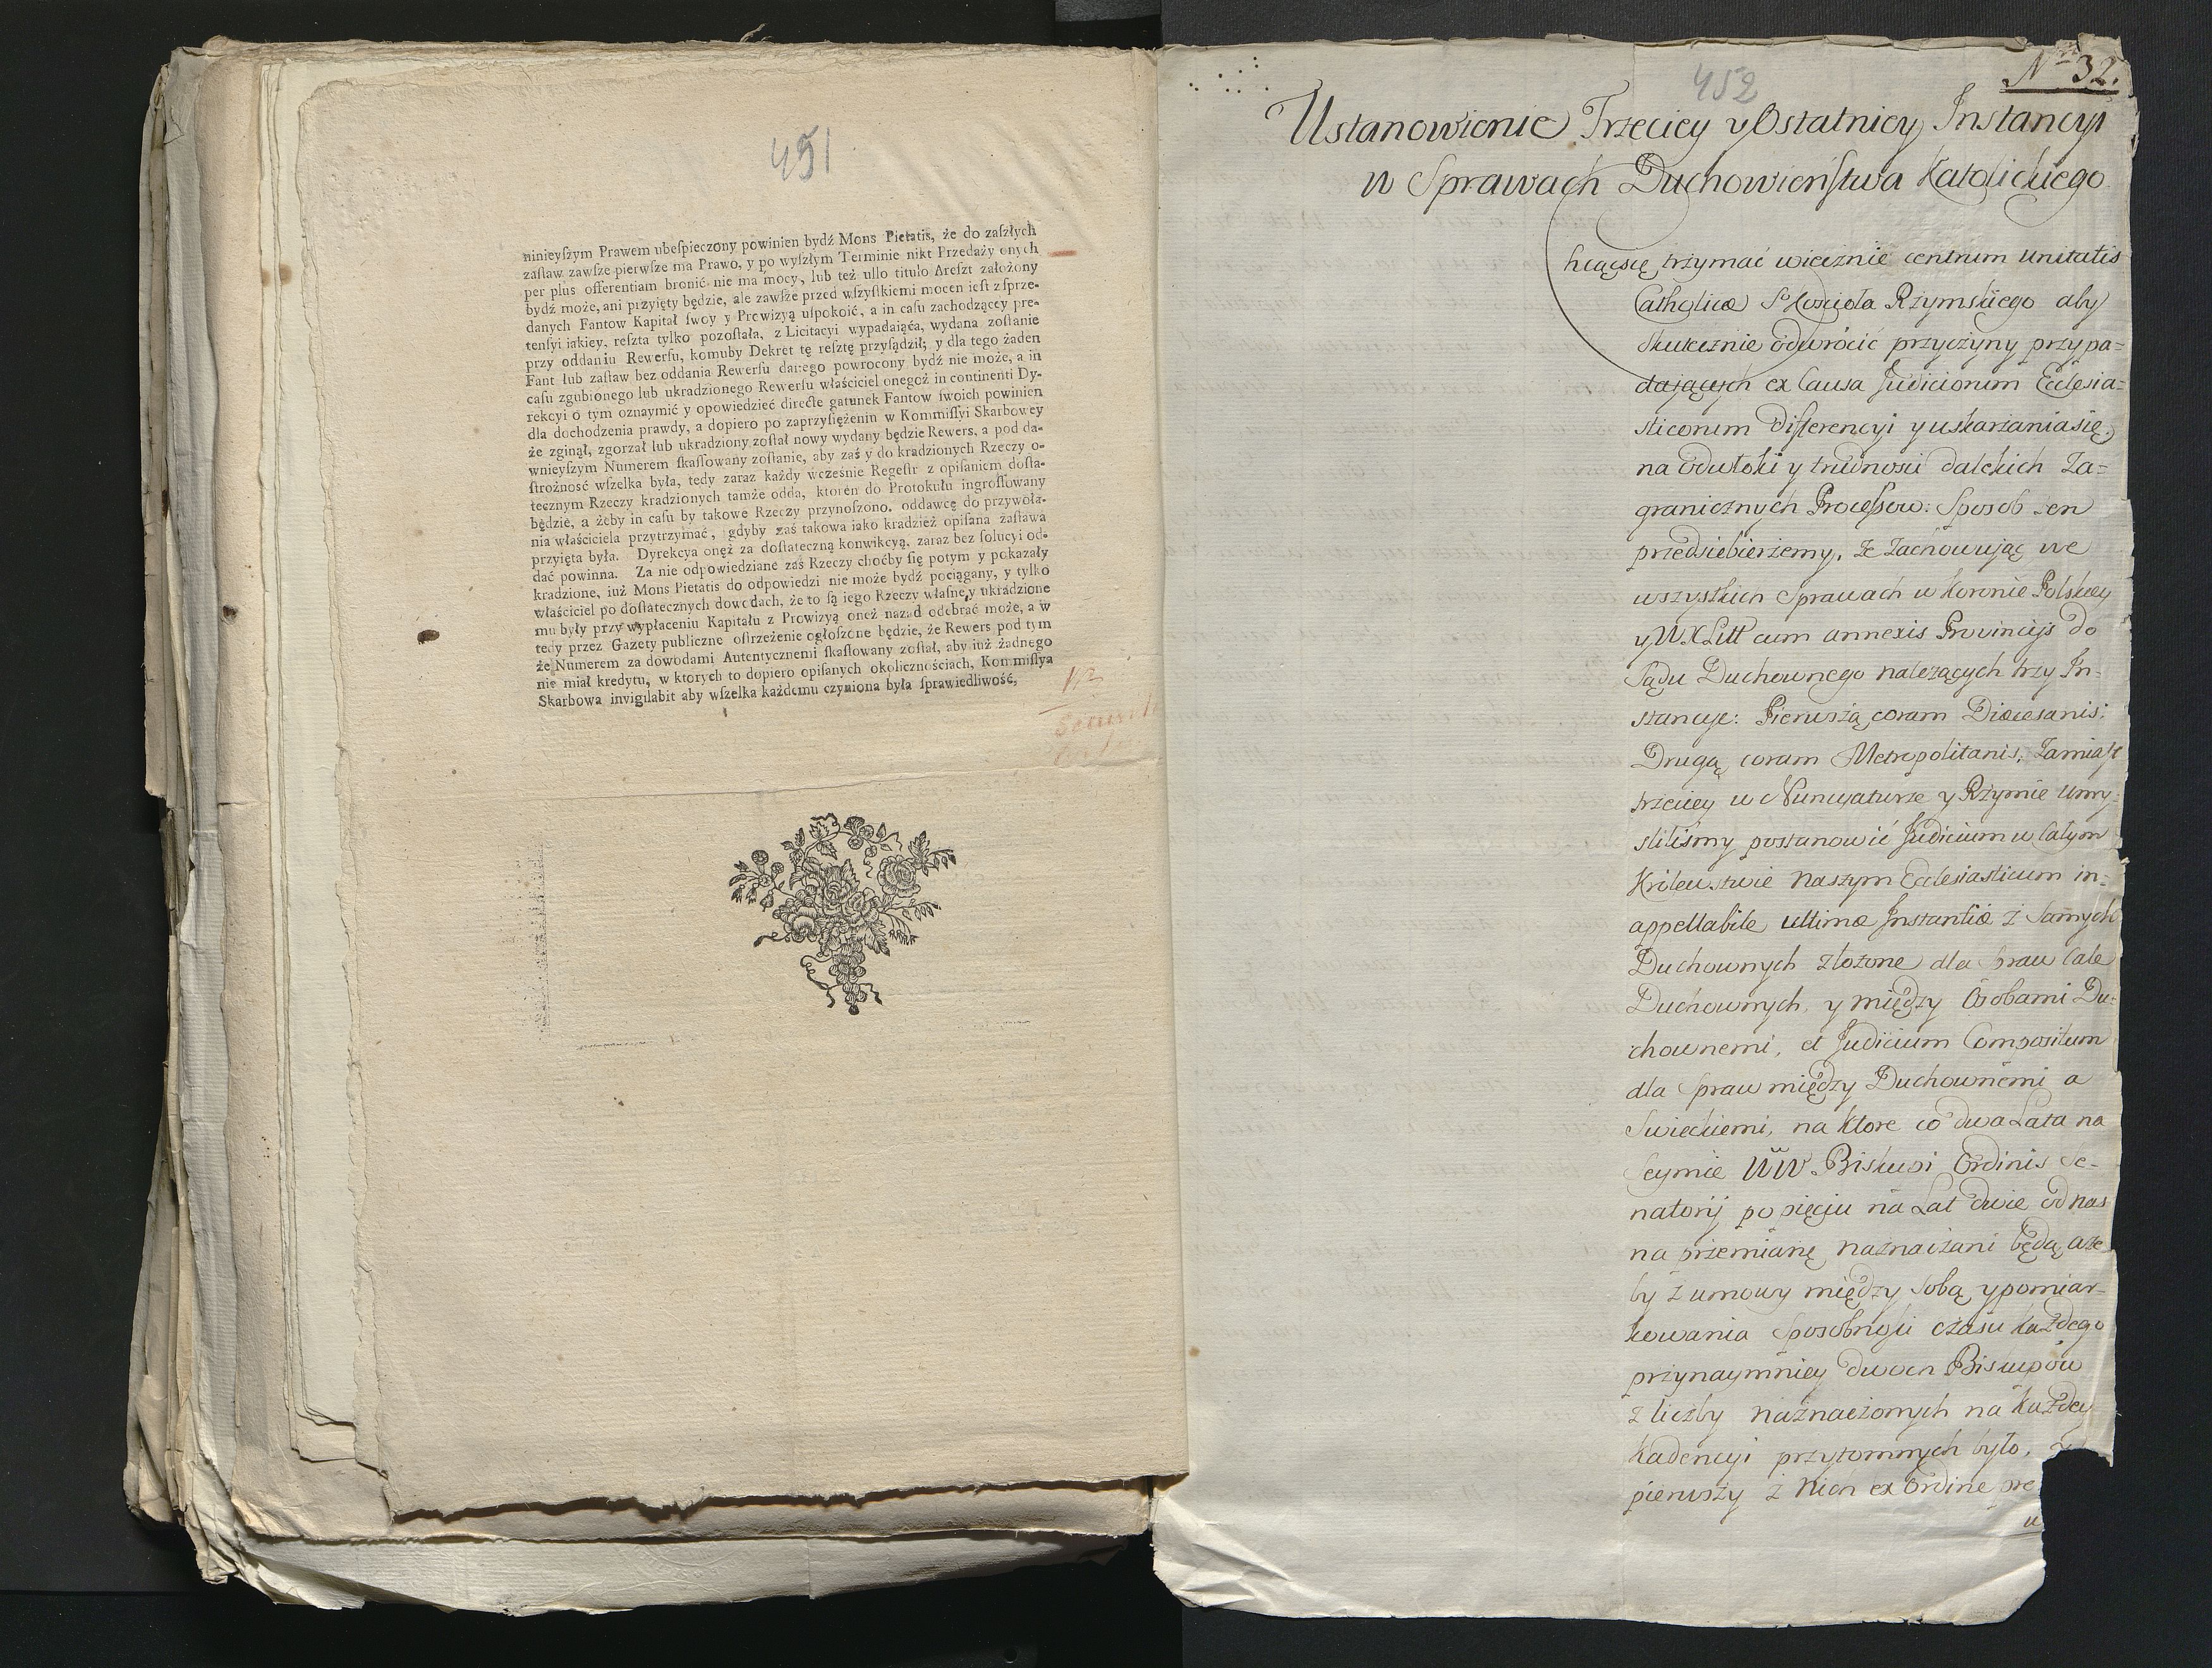 451
ninieyſzym Prawem ubeſpieczony powinien bydź Mons Pietatis, że do zaſzłych
zaſtaw zawſze pierwſze ma Prawo, y po wyſzłym Terminie nikt Przedaży onych
per plus offerentiam bronić nie ma mocy, lub też ullo titulo Areſzt założony
bydź może, ani przyięty będzie, ale zawſze przed wſzyſtkiemi mocen ieſt z ſprze-
danych Fantow Kapitał ſwoy y Prowizyą uſpokoić, a in caſu zachodzącey pre-
tenſyi iakiey, reſzta tylko pozoſtała, z Licitacyi wypadaiąća, wydana zoſtanie
przy oddaniu Rewerſu, komuby Dekret tę reſztę przyſądził; y dla tego żaden
Fant lub zaſtaw bez oddania Rewerſu danego powrocony bydź nie może, a in
caſu zgubionego lub ukradzionego Rewerſu właściciel onegoż in continenti Dy-
rekcyi o tym oznaymić y opowiedzieć directe gatunek Fantow ſwoich powinien
dla dochodzenia prawdy, a dopiero po zaprzyſiężeniu w Kommiſſyi Skarbowey
że zginął, zgorzał lub ukradziony zoſtał nowy wydany będzie Rewers, a pod da-
wnieyſzym Numerem ſkaſſowany zoſtanie, aby zaś y do kradzionych Rzeczy o-
ſtrożność wſzelka była, tedy zaraz każdy wcześnie Regeſtr z opiſaniem doſta-
tecznym Rzeczy kradzionych tamże odda, ktoren do Protokułu ingroſſowany
będzie, a żeby in caſu by takowe Rzeczy przynoſzono, oddawcę do przywoła-
nia właściciela przytrzymać, gdyby zaś takowa iako kradzież opiſana zaſtawa
przyięta była. Dyrekcya onęż za doſtateczną konwikcyą, zaraz bez ſolucyi od-
dać powinna. Za nie odpowiedziane zaś Rzeczy choćby ſię potym y pokazały
kradzione, iuż Mons Pietatis do odpowiedzi nie może bydź pociągany, y tylko
właściciel po doſtatecznych dowodach, że to ſą iego Rzeczy właſne, y ukradzione
mu były przy wypłaceniu Kapitału z Prowizyą oneż nazad odebrać może, a w
tedy przez Gazety publiczne oſtrzeżenie ogłoſzone będzie, że Rewers pod tym
że Numerem za dowodami Autentycznemi ſkaſſowany zoſtał, aby iuż żadnego
nie miał kredytu, w ktorych to dopiero opiſanych okolicznościach, Kommiſſya
Skarbowa invigilabit aby wſzelka każdemu czyniona była ſprawiedliwość,
452
Nro 32.
Ustanowienie Trzeciey y Ostatniey Instancyi
w Sprawach Duchowieństwa Katolickiego
Chcąc się trzymać wiecznie centrum unitatis
Catholicæ So Kościoła Rzymskiego aby
skutecznie odwrócić przyczyny przypa=
dających ex Causa Judiciorum Ecclesia=
sticorum differencyi y uskarżania się,
na odwłoki y trudności dalekich Za=
granicznych Processow: Sposob ten
przedsiębierzemy, że zachowując we
wszystkich Sprawach w Koronie Polskiey
y W.X.Litt cum annexis Provincijs do
Sądu Duchownego należących trzy In-
stancye: Pierwszą coram Diœcesanis:
Drugą coram Metropolitanis, Zamiast
trzeciey w Nuncyaturze y Rzymie umy-
slilismy postanowić Judicium w całym
Królewstwie Naszym Ecclesiasticum in-
appellabile ultimæ Instantiæ z samych
Duchownych złożone dla spraw cale
Duchownych, y między Osobami Du-
chownemi, et Judicium Compositum
dla spraw między Duchownemi a
Swieckiemi, na które co dwa Lata na
Seymie WW. Biskupi Ordinis Se-
natorij po pięciu na Lat dwie od nas
na przemianę naznaczani będą, aże
by z umowy między sobą y pomiar-
kowania sposobności czasu każdego
przynaymniey dwoch Biskupów
z liczby naznaczonych na każdey
Kadencyi przytomnych było, a
pierwszy z nich ex Ordine pre